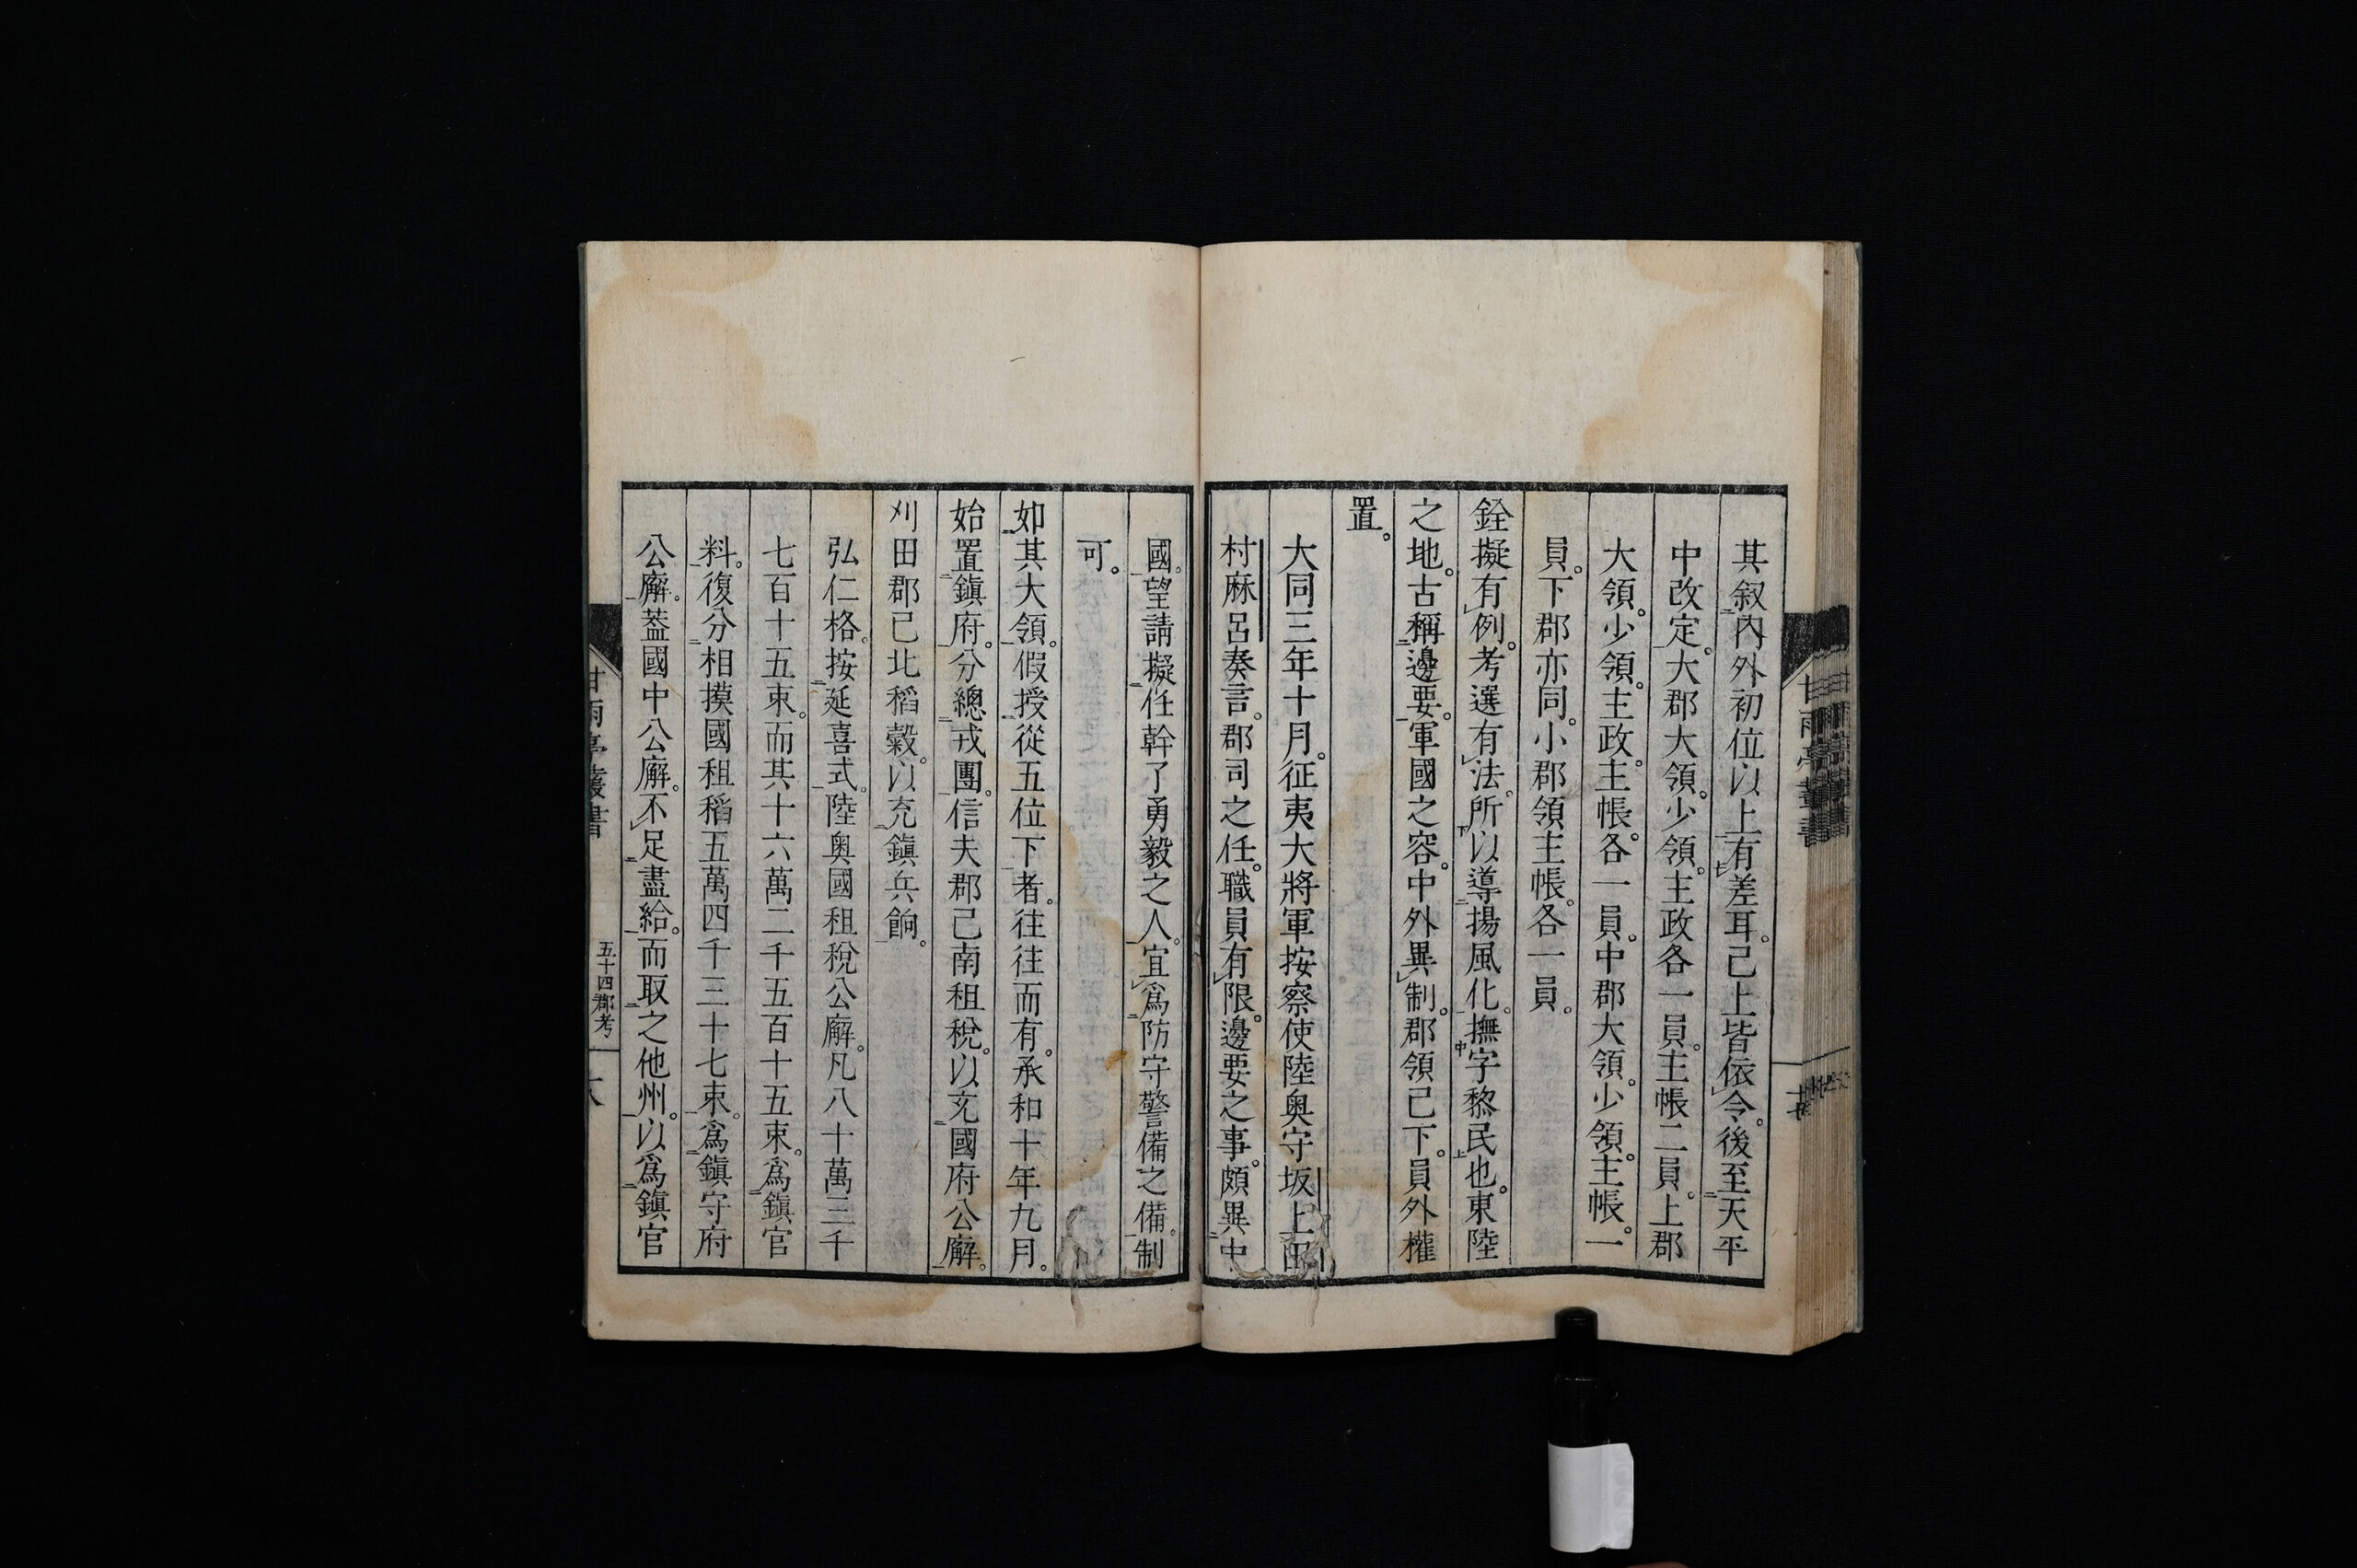 其叙內外初位以上有差耳。己上皆依令。後至天平
中改定。大郡大領。少領。主政各一員。主帳二員。上郡
大領。少領。主政。主帳。各一員。中郡大領。少領。主帳。一
員。下郡亦同。小郡領主帳。各一員。
銓擬有例。考選有法。所以導揚風化。撫字黎民也。東陸
之地。古稱邊要。軍國之容。中外異制。郡領己下。員外權
置。
大同三年十月。征夷大將軍按察使陸奥守坂上田
村麻呂奏言。郡司之任。職員有限。邊要之事。頗異中
國。望請擬任幹了勇毅之人。宜爲防守警備之備。制
可。
如其大領。假授從五位下者。往往而有。承和十年九月。
始置鎭府。分總戎團。信夫郡己南租稅。以充國府公廨。
刈田郡己北稻穀。以充鎭兵餉。
弘仁格。按延喜式。陸奥國租稅公廨。凡八十萬三千
七百十五束。而其十六萬二千五百十五束。爲鎭官
料。復分相摸國租稻五萬四千三十七束。爲鎭守府
公廨。葢國中公廨。不足盡給。而取之他州。以爲鎭官
甘雨亭叢書
五十四郡考
十八